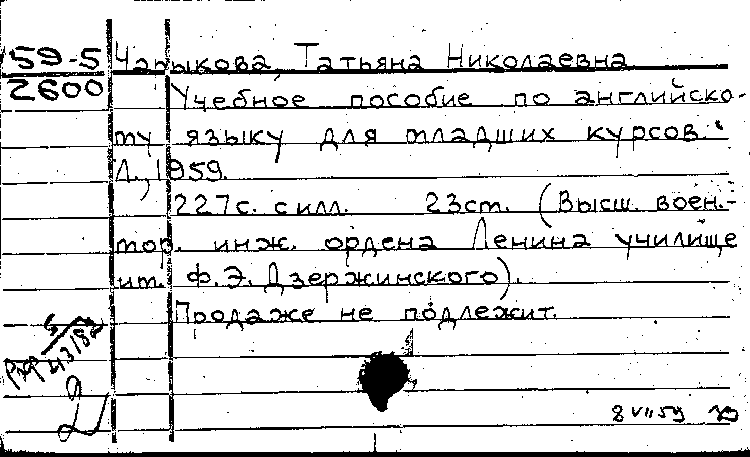 59-5
2600
Чарыкова, Татьяна Николаевна
Учебное пособие по английско-
му языку для младших курсов.
Л., 1959.
227с. с илл. 23см. (Высш. воен.-
мор. инж. ордена Ленина училище
им. Ф.Э. Дзержинского).
Продаже не подлежит.
5
43182
2
8 VII 59